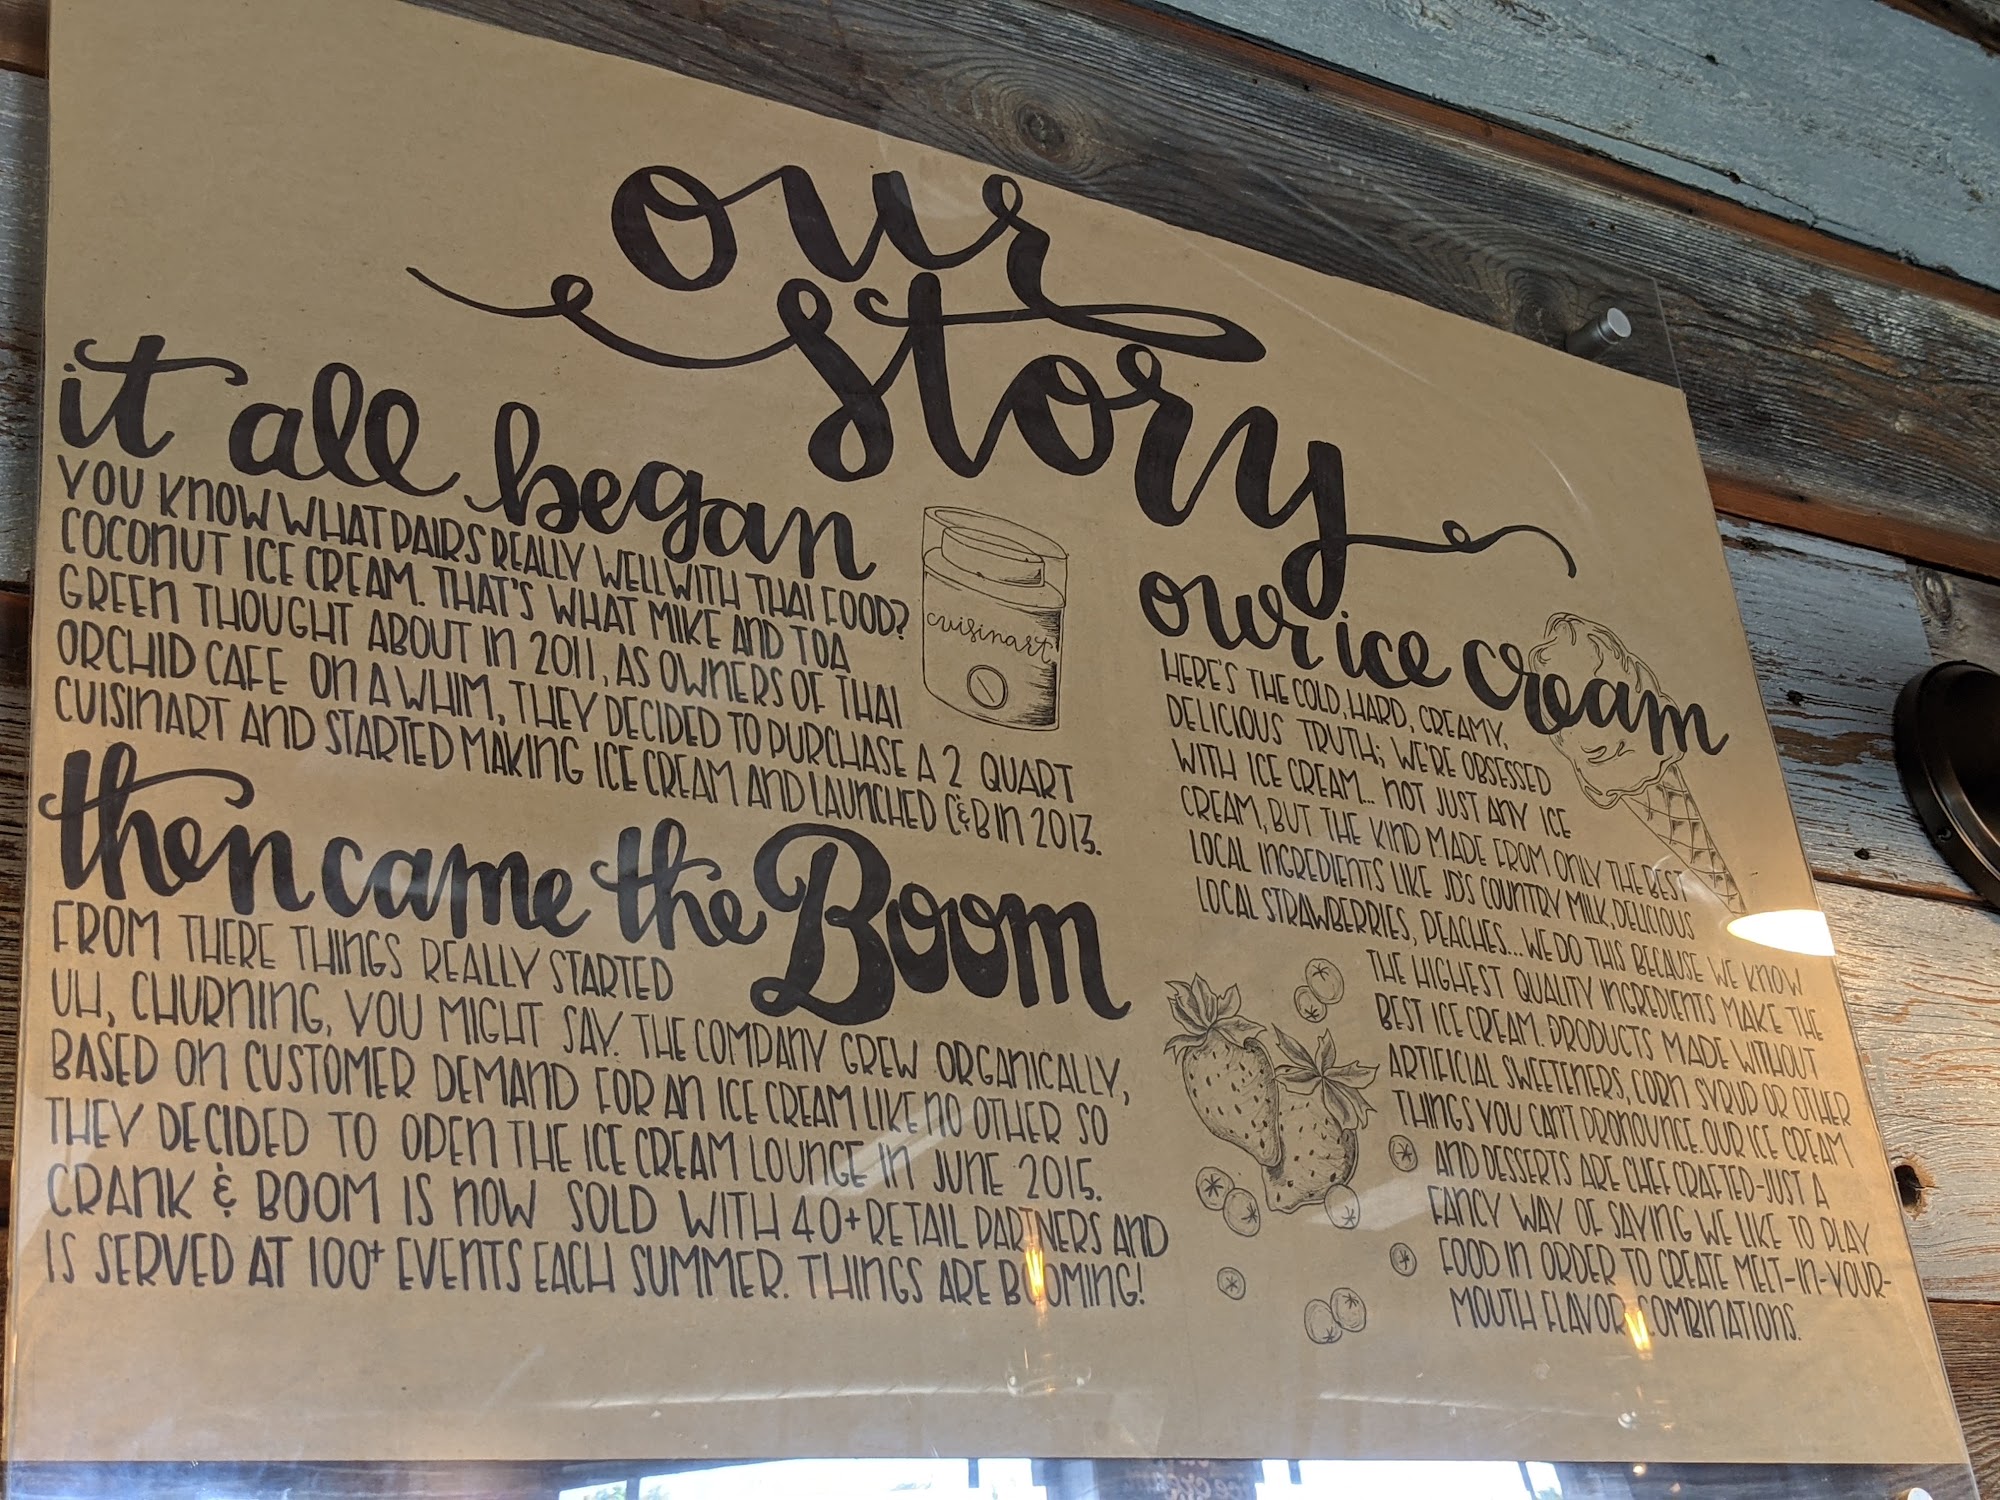 our
story
it all began
YOU KNOW WHAT PAIRS REALLY WELL WITH THAI FOOD?
COCONUT ICE CREAM. THAT'S WHAT MIKE AND TOA
GREEN THOUGHT ABOUT IN 2011, AS OWNERS OF THAI
ORCHID CAFE ON A WHIM, THEY DECIDED TO PURCHASE A 2 QUART
CUISINART AND STARTED MAKING ICE CREAM AND LAUNCHED C&B IN 2013.
cuisinart
then came the Boom
FROM THERE THINGS REALLY STARTED
UH, CHURNING, YOU MIGHT SAY. THE COMPANY GREW ORGANICALLY,
BASED ON CUSTOMER DEMAND FOR AN ICE CREAM LIKE NO OTHER SO
THEY DECIDED TO OPEN THE ICE CREAM LOUNGE IN JUNE 2015.
CRANK & BOOM IS NOW SOLD WITH 40+ RETAIL PARTNERS AND
IS SERVED AT 100+ EVENTS EACH SUMMER. THINGS ARE BOOMING!
our ice cream
HERE'S THE COLD, HARD, CREAMY,
DELICIOUS TRUTH; WE'RE OBSESSED
WITH ICE CREAM... NOT JUST ANY ICE
CREAM, BUT THE KIND MADE FROM ONLY THE BEST
LOCAL INGREDIENTS LIKE JD'S COUNTRY MILK, DELICIOUS
LOCAL STRAWBERRIES, PEACHES... WE DO THIS BECAUSE WE KNOW
THE HIGHEST QUALITY INGREDIENTS MAKE THE
BEST ICE CREAM. PRODUCTS MADE WITHOUT
ARTIFICIAL SWEETENERS, CORN SYRUP OR OTHER
THINGS YOU CAN'T PRONOUNCE. OUR ICE CREAM
AND DESSERTS ARE CHEF CRAFTED-JUST A
FANCY WAY OF SAYING WE LIKE TO PLAY
FOOD IN ORDER TO CREATE MELT-IN-YOUR-
MOUTH FLAVOR COMBINATIONS.